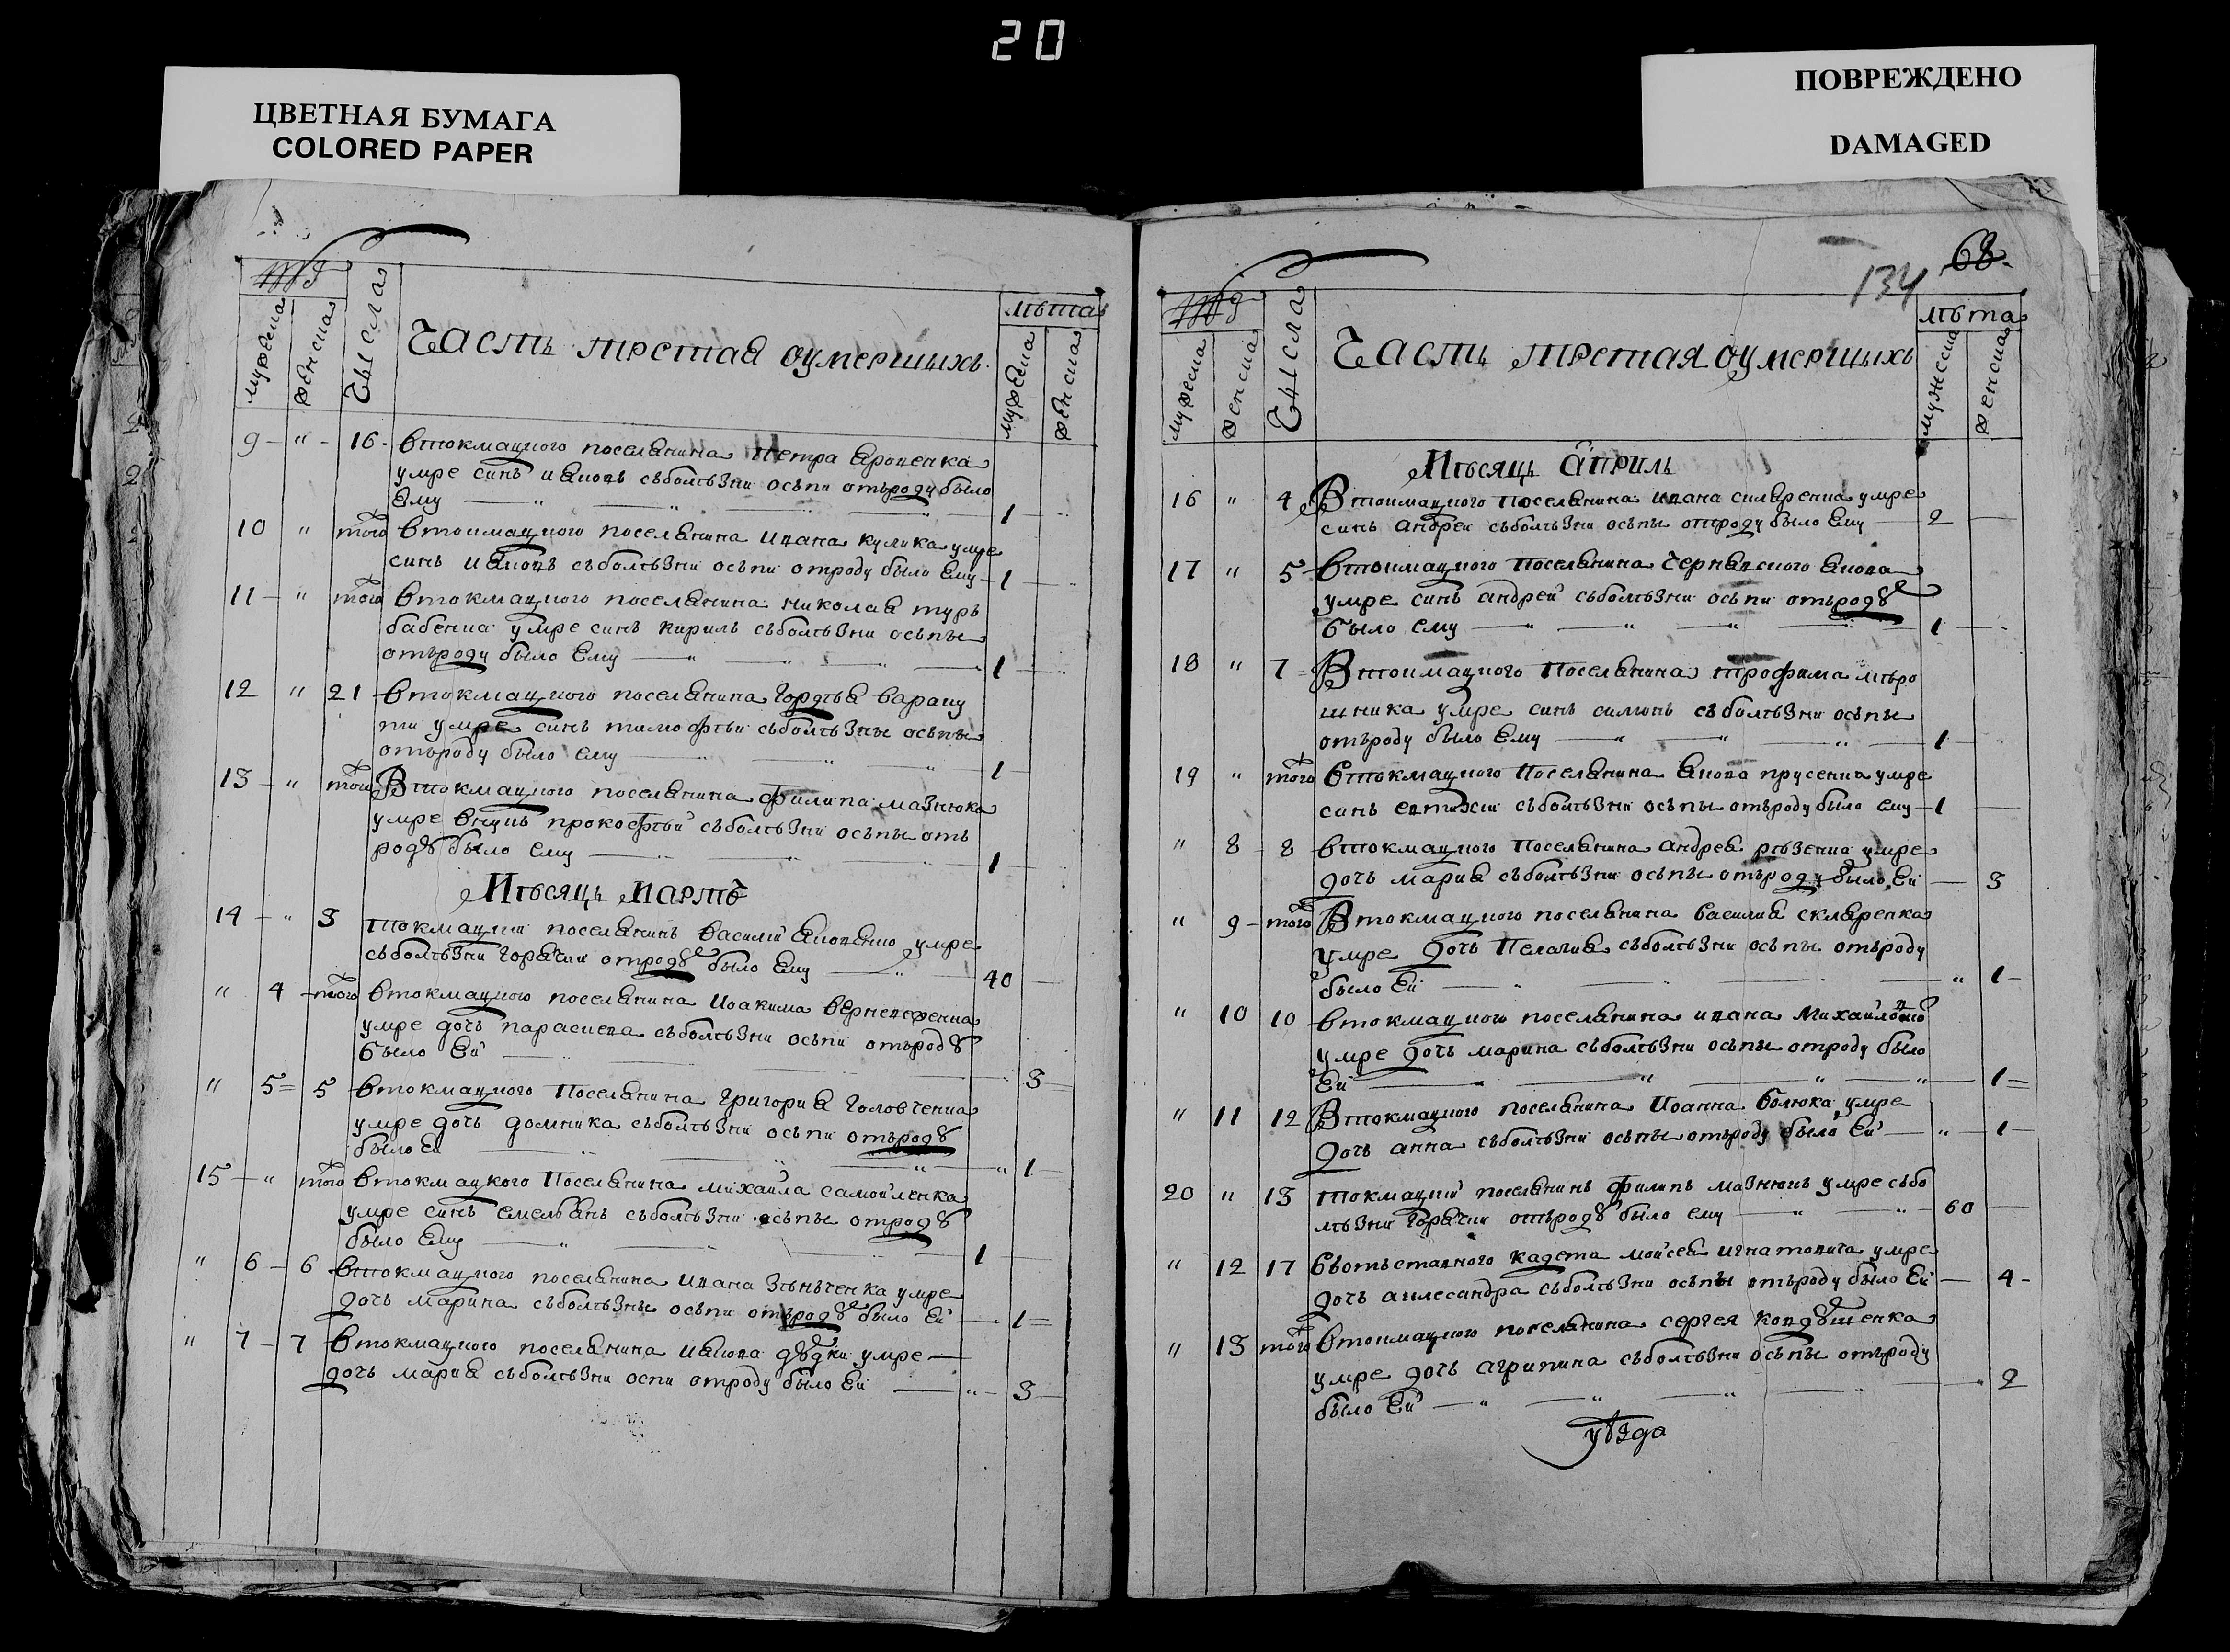 20
ЦВЕТНАЯ БУМАГА
COLORED PAPER
ПОВРЕЖДЕНО
DAMAGED
мужеска
женска
Числа
Часть третая оумершыхъ
лѣта
мужеска
женска
9 " 16 Втокмацкого поселянина Петра Яроценка
умре синъ Иаковъ съболѣзни осьпи отъроду было
ему 1
10 " того Втокмацкого поселянина Ивана Кулика умре
синъ Иаковъ съболѣзни осьпи отроду было ему 1
11 " того Втокмацкого поселянина Николая Турь
бабенка умре синъ Кирилъ съболѣзни осьпы
отъроду было ему 1
12 " 21 Втокмацкого поселянина Гордѣя Варацу
ти умре синъ Тимофѣй съболѣзны осьпы
отъроду было ему 1
13 " того Втокмацкого поселянина Филипа Мазнюка
умре внукъ Прокофѣй съболѣзни осьпы отъ
родꙋ было ему 1
Мѣсяць Мартъ
14 " 3 Токмацкий поселянинъ Василий Яковенко умре
съболѣзни горячки отродꙋ было ему 40
" 4 того Втокмацкого поселянина Иоакима
умре дочь Параскева съболѣзни осьпи отъродꙋ
было ей 3
" 5 5 Втокмацкого поселянина Григория Головченка
умре дочь Домника съболѣзни осьпи отъродꙋ
было ей " 1
15 " того Втокмацкого поселянина Михаила Самойленка
умре синъ Емельянъ съболѣзни осьпы отродꙋ
было ему 1
" 6 6 Втокмацкого поселянина Ивана Зѣньченка умре
дочь Марина съболѣзны осьпи отъродꙋ было ей 1
" 7 7 Втокмацкого поселянина Иакова Дꙋдки умре
дочь Мария съболѣзни оспи отроду было ей " 3
134 68
мужеска
женска
Числа
Часть третая оумершыхъ
лѣта
мужеска
женска
Мѣсяць Априль
16 " 4 Втокмацкого поселянина Ивана Скляренка умре
синъ Андрей съболѣзни осьпы отроду было ему 2
17 " 5 Втокмацкого поселянина Чернявского Якова
умре синъ Андрей съболѣзни осьпи отъродꙋ
было ему 1
18 " 7 Втокмацкого поселянина Трофима Мѣро
шника умре синъ Симонъ съболѣзни осьпы
отъроду было ему 1
19 " того Втокмацкого поселянина Якова Прусенка умре
синъ Евтихий съболѣзни осьпы отъроду было ему 1
" 8 8 Втокмацкого поселянина Андрея Рѣзенка умре
дочь Мария съболѣзни осьпы отъроду было ей 3
" 9 того Втокмацкого поселянина Василия Скляренка
умре дочь Пелагия съболѣзни осьпы отъроду
было ей " 1
" 10 10 Втокмацкого поселянина Ивана
умре дочь Марина съболѣзни осьпы отроду было
ей 1
" 11 12 Втокмацкого поселянина Иоанна Болюка умре
дочь Анна съболѣзни осьпы отъроду было ей " 1
20 " 13 Токмацкий поселянинъ Филипъ Мазнюкъ умре събо
лѣзни горячки отъродꙋ было ему 60
" 12 17 Вотъставного кадета Мойсея Игнатовича умре
дочь Александра съболѣзни осьпы отъроду было ей 4
" 13 того Втокмацкого поселянина Сергея
умре дочь Агрипина съболѣзни осьпы отъроду
было ей 2
уѣзда